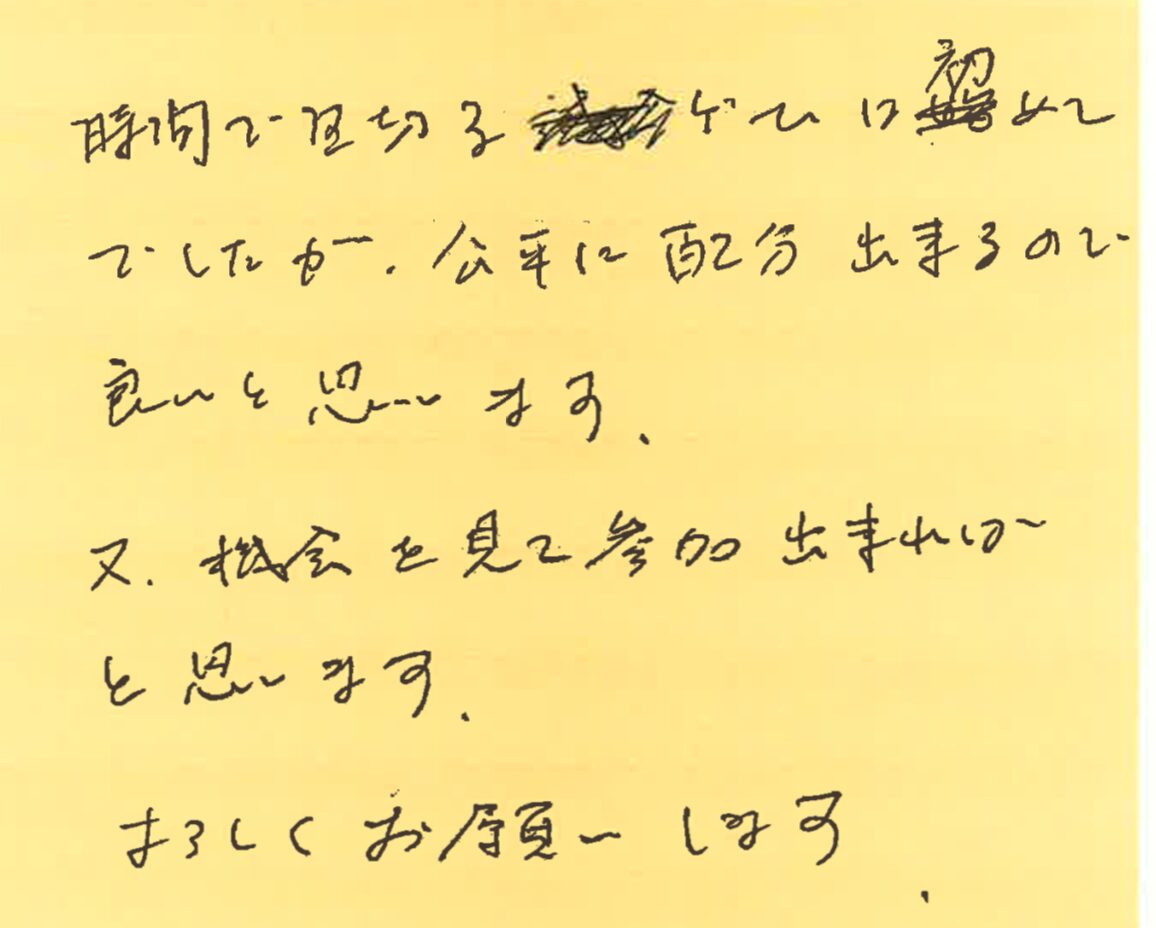 時間で区切る は初めて
でしたが、公平に配分出来るので
良いと思います、
又、機会を見て参加出来れば
と思います、
よろしくお願いします、